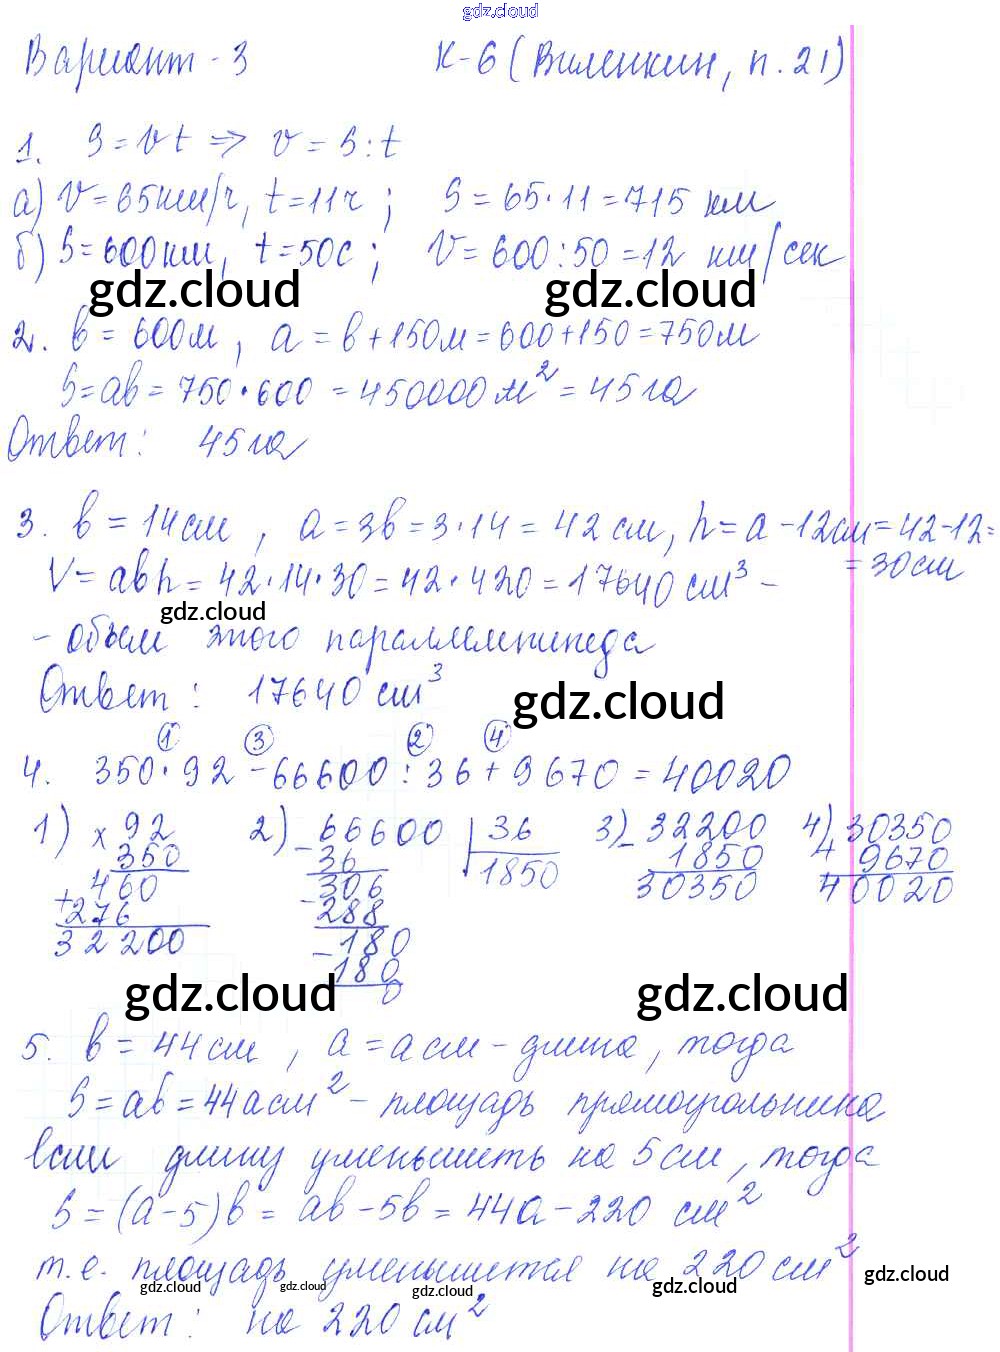 gdz.cloud
Вариант - 3 К-6 (Виленкин, п. 21)
1. S = vt => v = S : t
а) V = 65км/ч, t = 11ч ; S = 65·11 = 715 км
б) S = 600км, t = 50с ; V = 600 : 50 = 12 км/сек
gdz.cloud gdz.cloud
2. b = 600м , a = b + 150м = 600 + 150 = 750м
S = ab = 750·600 = 450000м² = 45га
Ответ : 45га
3. b = 14см , a = 3b = 3·14 = 42см, h = a - 12см = 42 - 12 =
= 30см
V = abh = 42·14·30 = 42·420 = 17640 см³ -
gdz.cloud
- объем этого параллелепипеда
Ответ : 17640 см³
gdz.cloud
① ③ ② ④
4. 350·92 - 66600 : 36 + 9670 = 40020
1) × 92 2) - 66600 | 36 3) - 32200 4) 30350
350 36 1850 1850 + 9670
460 - 306 30350 40020
+ 276 288
32200 - 180
180
0
gdz.cloud gdz.cloud
5. b = 44см , a = a см - длина, тогда
S = ab = 44a см² - площадь прямоугольника
Если длину уменьшить на 5см, тогда
S = (a - 5)b = ab - 5b = 44a - 220 см²
т.е. площадь уменьшится на 220 см²
gdz.cloud gdz.cloud gdz.cloud gdz.cloud gdz.cloud
Ответ : на 220 см²